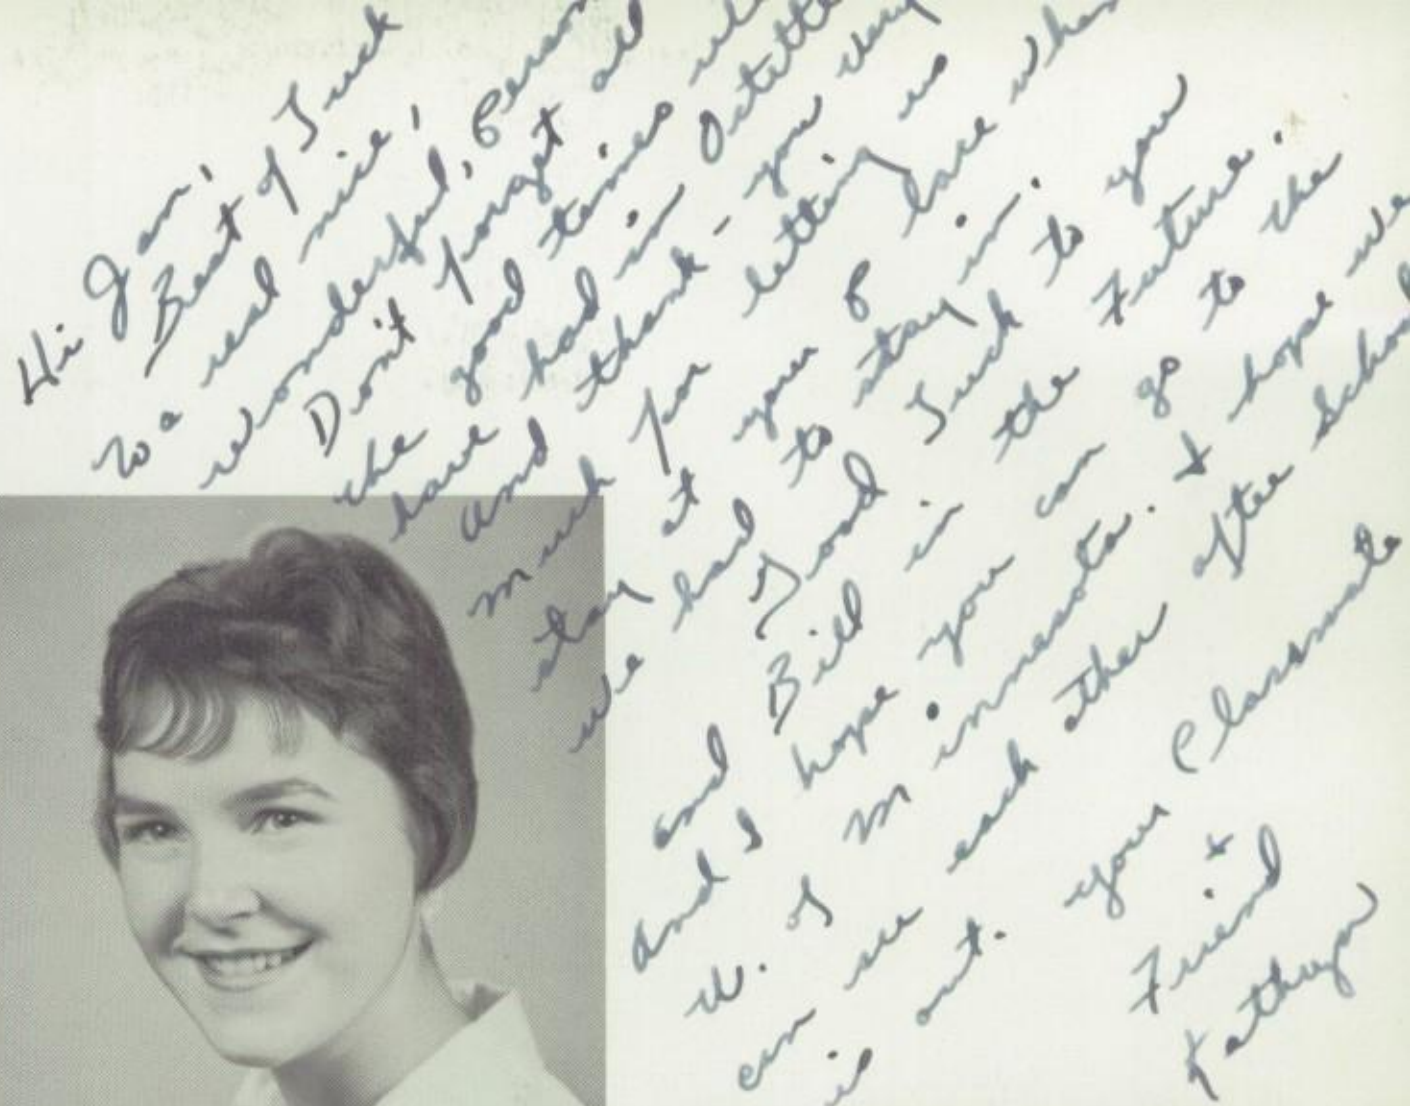 Hi Jan,
Best of Luck
to a real nice,
wonderful, Person
Don't forget all
the good times we
have had in Octette
and thank-you very
much for letting us
stay at your place when
we had to stay in.
Good Luck to you
and Bill in the Future.
And I hope you can go to the
U. of Minnesota. I hope we
can see each other after School
is out.
your Classmate
+
Friend
Kathryn